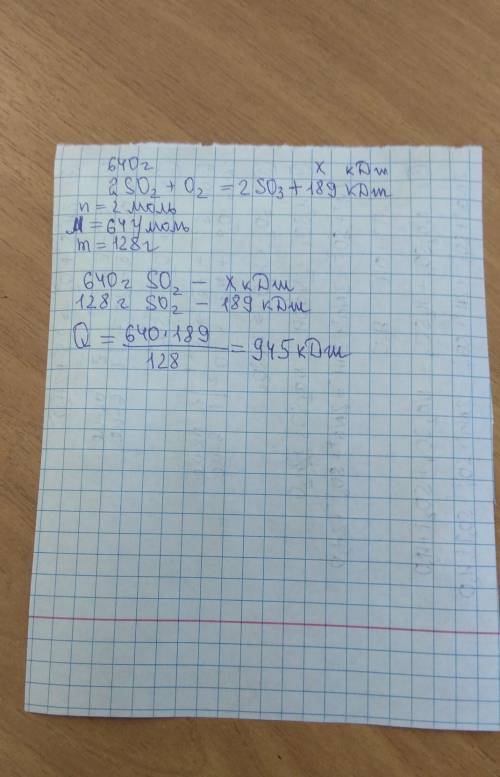 640г x кДж
2SO₂ + O₂ = 2SO₃ + 189 кДж
n = 2 моль
M = 64 г/моль
m = 128 г
640 г SO₂ — x кДж
128 г SO₂ — 189 кДж
Q = 640·189 / 128 = 945 кДж